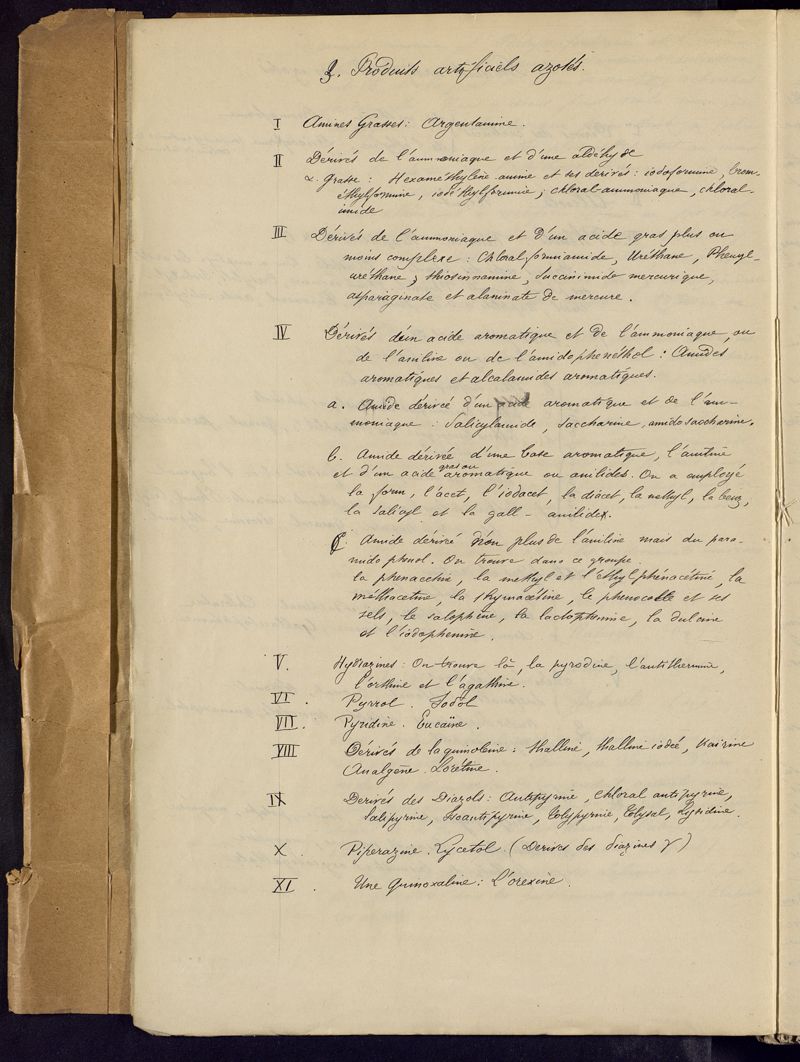 3. Produits artificiels azotés.
I Amines Grasses : Argentamine.
II Dérivés de l'ammoniaque et d'une aldéhyde
α. grasse : Hexaméthylène-amine et ses dérivés : iodoformine, brom-
éthylformine, iodéthylformine ; chloral-ammoniaque, chloral-
imide
III Dérivés de l'ammoniaque et d'un acide gras plus ou
moins complexe : Chloralformiamide, Uréthane, Phenyl-
uréthane, thiosinnamine, Succinimide mercurique,
asparaginate et alaninate de mercure.
IV Dérivés d'un acide aromatique et de l'ammoniaque, ou
de l'aniline ou de l'amidophenéthol : Amides
aromatiques et alcalamides aromatiques.
a. Amide dérivée d'un acide aromatique et de l'am-
moniaque : Salicylamide, saccharine, amidosaccharine.
b. Amide dérivée d'une base aromatique, l'aniline
et d'un acide gras ou aromatique ou anilides. On a employé
la form, l'acet, l'iodacet, la diacet, la methyl, la benz,
la salicyl et la gall - anilide.
c. Amide dérivée non plus de l'aniline mais du para-
mido phenol. On trouve dans ce groupe
la phenacetine, la methyl et l'éthylphénacétine, la
méthacetine, la thymacétine, le phenocolle et ses
sels, le salophène, la lactophenine, la dulcine
et l'iodophenine.
V. Hydrazines : On trouve là, la pyrodine, l'antithermine,
l'orthine et l'agathine.
VI. Pyrrol. Iodol
VII. Pyridine. Eucaïne.
VIII Dérivés de la quinoleine : thalline, thalline iodée, Kairine
Analgène. Lorétine.
IX Derivés des Diazols : Antipyrine, Chloral antipyrine,
Salipyrine, Isoantipyrine, Tolypyrine, Tolysal, Lysidine.
X. Piperazine. Lycetol. (Derives des diazines γ)
XI. Une Quinoxaline : L'orexine.